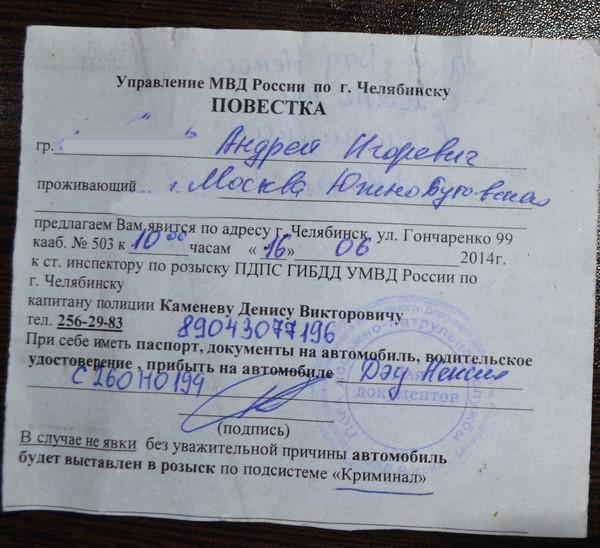 Управление МВД России по г. Челябинску
ПОВЕСТКА
гр. Андрей Игоревич
проживающий г. Москва Южнобутовская
предлагаем Вам явится по адресу г. Челябинск, ул. Гончаренко 99
кааб. № 503 к 10 00 часам «16» 06 2014г.
к ст. инспектору по розыску ПДПС ГИБДД УМВД России по
г. Челябинску
капитану полиции Каменеву Денису Викторовичу
тел. 256-29-83 89043077196
При себе иметь паспорт, документы на автомобиль, водительское
удостоверение , прибыть на автомобиле Дэу Нексия
С260НО199
(подпись)
В случае не явки без уважительной причины автомобиль
будет выставлен в розыск по подсистеме «Криминал»
документов